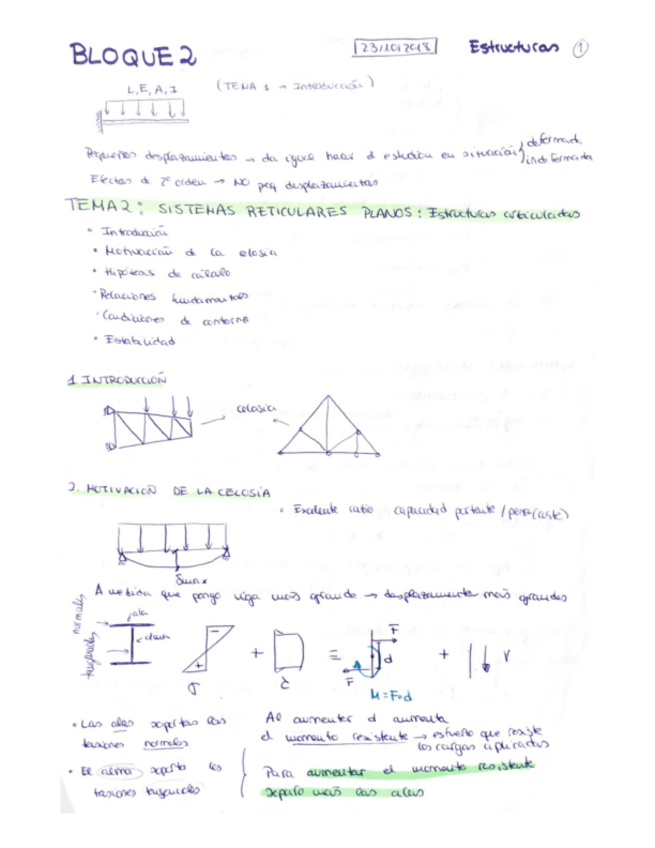 BLOQUE 2
23/10/2018
Estructuras 1
L, E, A, I
(TEMA 1 → Introducción)
Pequeños desplazamientos → da igual hacer el estudio en situación { deformada
indeformada
Efectos de 2º orden → NO peq desplazamientos
TEMA 2: SISTEMAS RETICULARES PLANOS: Estructuras articuladas
• Introducción
• Motivación de la celosía
• Hipótesis de cálculo
• Relaciones fundamentales
• Condiciones de contorno
• Estabilidad
1. INTRODUCCIÓN
celosía
2. MOTIVACIÓN DE LA CELOSÍA
• Excelente ratio capacidad portante / peso (coste)
δmax
A medida que pongo viga más grande → desplazamientos más grandes
normales
tangenciales
ala
alma
σ
+
-
+
τ
≡
F
d
F
M = F·d
+
V
• Las alas soportan las
tensiones normales
• El alma soporta las
tensiones tangenciales
Al aumentar d aumenta
el momento resistente → esfuerzo que resiste
las cargas aplicadas
Para aumentar el momento resistente
separo más las alas